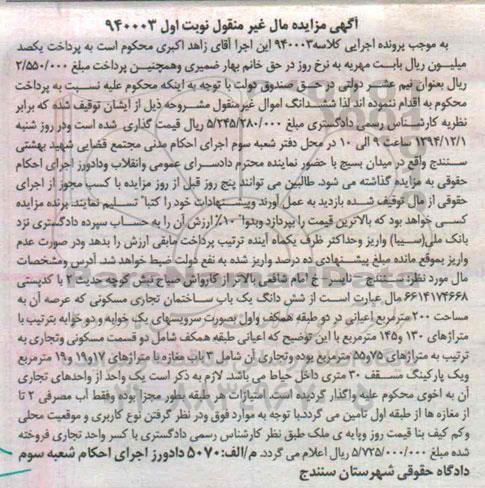 آگهی مزایده مال غیر منقول نوبت اول ۹۴۰۰۰۳
به موجب پرونده اجرایی کلاسه۹۴۰۰۰۳ این اجرا آقای زاهد اکبری محکوم است به پرداخت یکصد
میلیون ریال بابت مهریه به نرخ روز در حق خانم بهار ضمیری وهمچنین پرداخت مبلغ ۲/۵۵۰/۰۰۰
ریال بعنوان نیم عشر دولتی در حق صندوق دولت با توجه به اینکه محکوم علیه نسبت به پرداخت
محکوم به اقدام ننموده اند لذا ششدانگ اموال غیرمنقول مشروحه ذیل از ایشان توقیف شده که برابر
نظریه کارشناس رسمی دادگستری مبلغ ۵/۲۴۵/۲۸۰/۰۰۰ ریال قیمت گذاری شده است ودر روز شنبه
۱۳۹۴/۱۲/۱ ساعت ۹ الی ۱۰ در محل دفتر شعبه سوم اجرای احکام مدنی مجتمع قضایی شهید بهشتی
سنندج واقع در میدان بسیج با حضور نماینده محترم دادسرای عمومی وانقلاب ودادورز اجرای احکام
حقوقی به مزایده گذاشته می شود. طالبین می توانند پنج روز قبل از روز مزایده با کسب مجوز از اجرای
حقوقی از مال توقیف شده بازدید به عمل آورند وپیشنهادات خود را کتبا" تسلیم نمایند. برنده مزایده
کسی خواهد بود که بالاترین قیمت را بپردازد وبدوا" ۱۰٪ ارزش آن را به حساب سپرده دادگستری نزد
بانک ملی(سیبا) واریز وحداکثر ظرف یکماه آینده ترتیب پرداخت مابقی ارزش را بدهد ودر صورت عدم
واریز بموقع مانده مبلغ پیشنهادی ده درصد واریز شده به نفع دولت ضبط خواهد شد. آدرس ومشخصات
مال مورد نظر: سنندج – نایسر – خ امام شافعی بالاتر از کارواش صیاح نبش کوچه حدیث ۲ با کدپستی
۶۶۱۴۱۷۴۶۶۸ مال عبارت است از شش دانگ یک باب ساختمان تجاری مسکونی که عرصه آن به
مساحت ۲۰۰ مترمربع اعیانی در دو طبقه همکف واول بصورت سرویسهای یک خوابه ودو خوابه بترتیب با
متراژهای ۱۳۰ و۱۴۵ مترمربع با این توضیح که اعیانی طبقه همکف شامل دو قسمت مسکونی وتجاری به
ترتیب به متراژهای ۷۵و۵۵ مترمربع بوده وتجاری آن شامل ۳ باب مغازه با متراژهای ۱۷و۱۹ و۱۹ مترمربع
ویک پارکینگ مسقف ۳۰ متری داخل حیاط می باشد. لازم به ذکر است یک واحد از واحدهای تجاری
آن به اخوی محکوم علیه واگذار گردیده است. امتیازات هر طبقه بطور مجزا بوده وفقط آب مصرفی ۲ تا
از مغازه ها از طبقه اول تامین می گردد.با توجه به موارد فوق ودر نظر گرفتن نوع کاربری و موقعیت محلی
وکم کیف بنا قیمت روز وپایه ی ملک طبق نظر کارشناس رسمی دادگستری با کسر واحد تجاری فروخته
شده مبلغ ۵/۷۲۵/۰۰۰/۰۰۰ ریال اعلام می گردد. م/الف:۵۰۷۰ دادورز اجرای احکام شعبه سوم
دادگاه حقوقی شهرستان سنندج